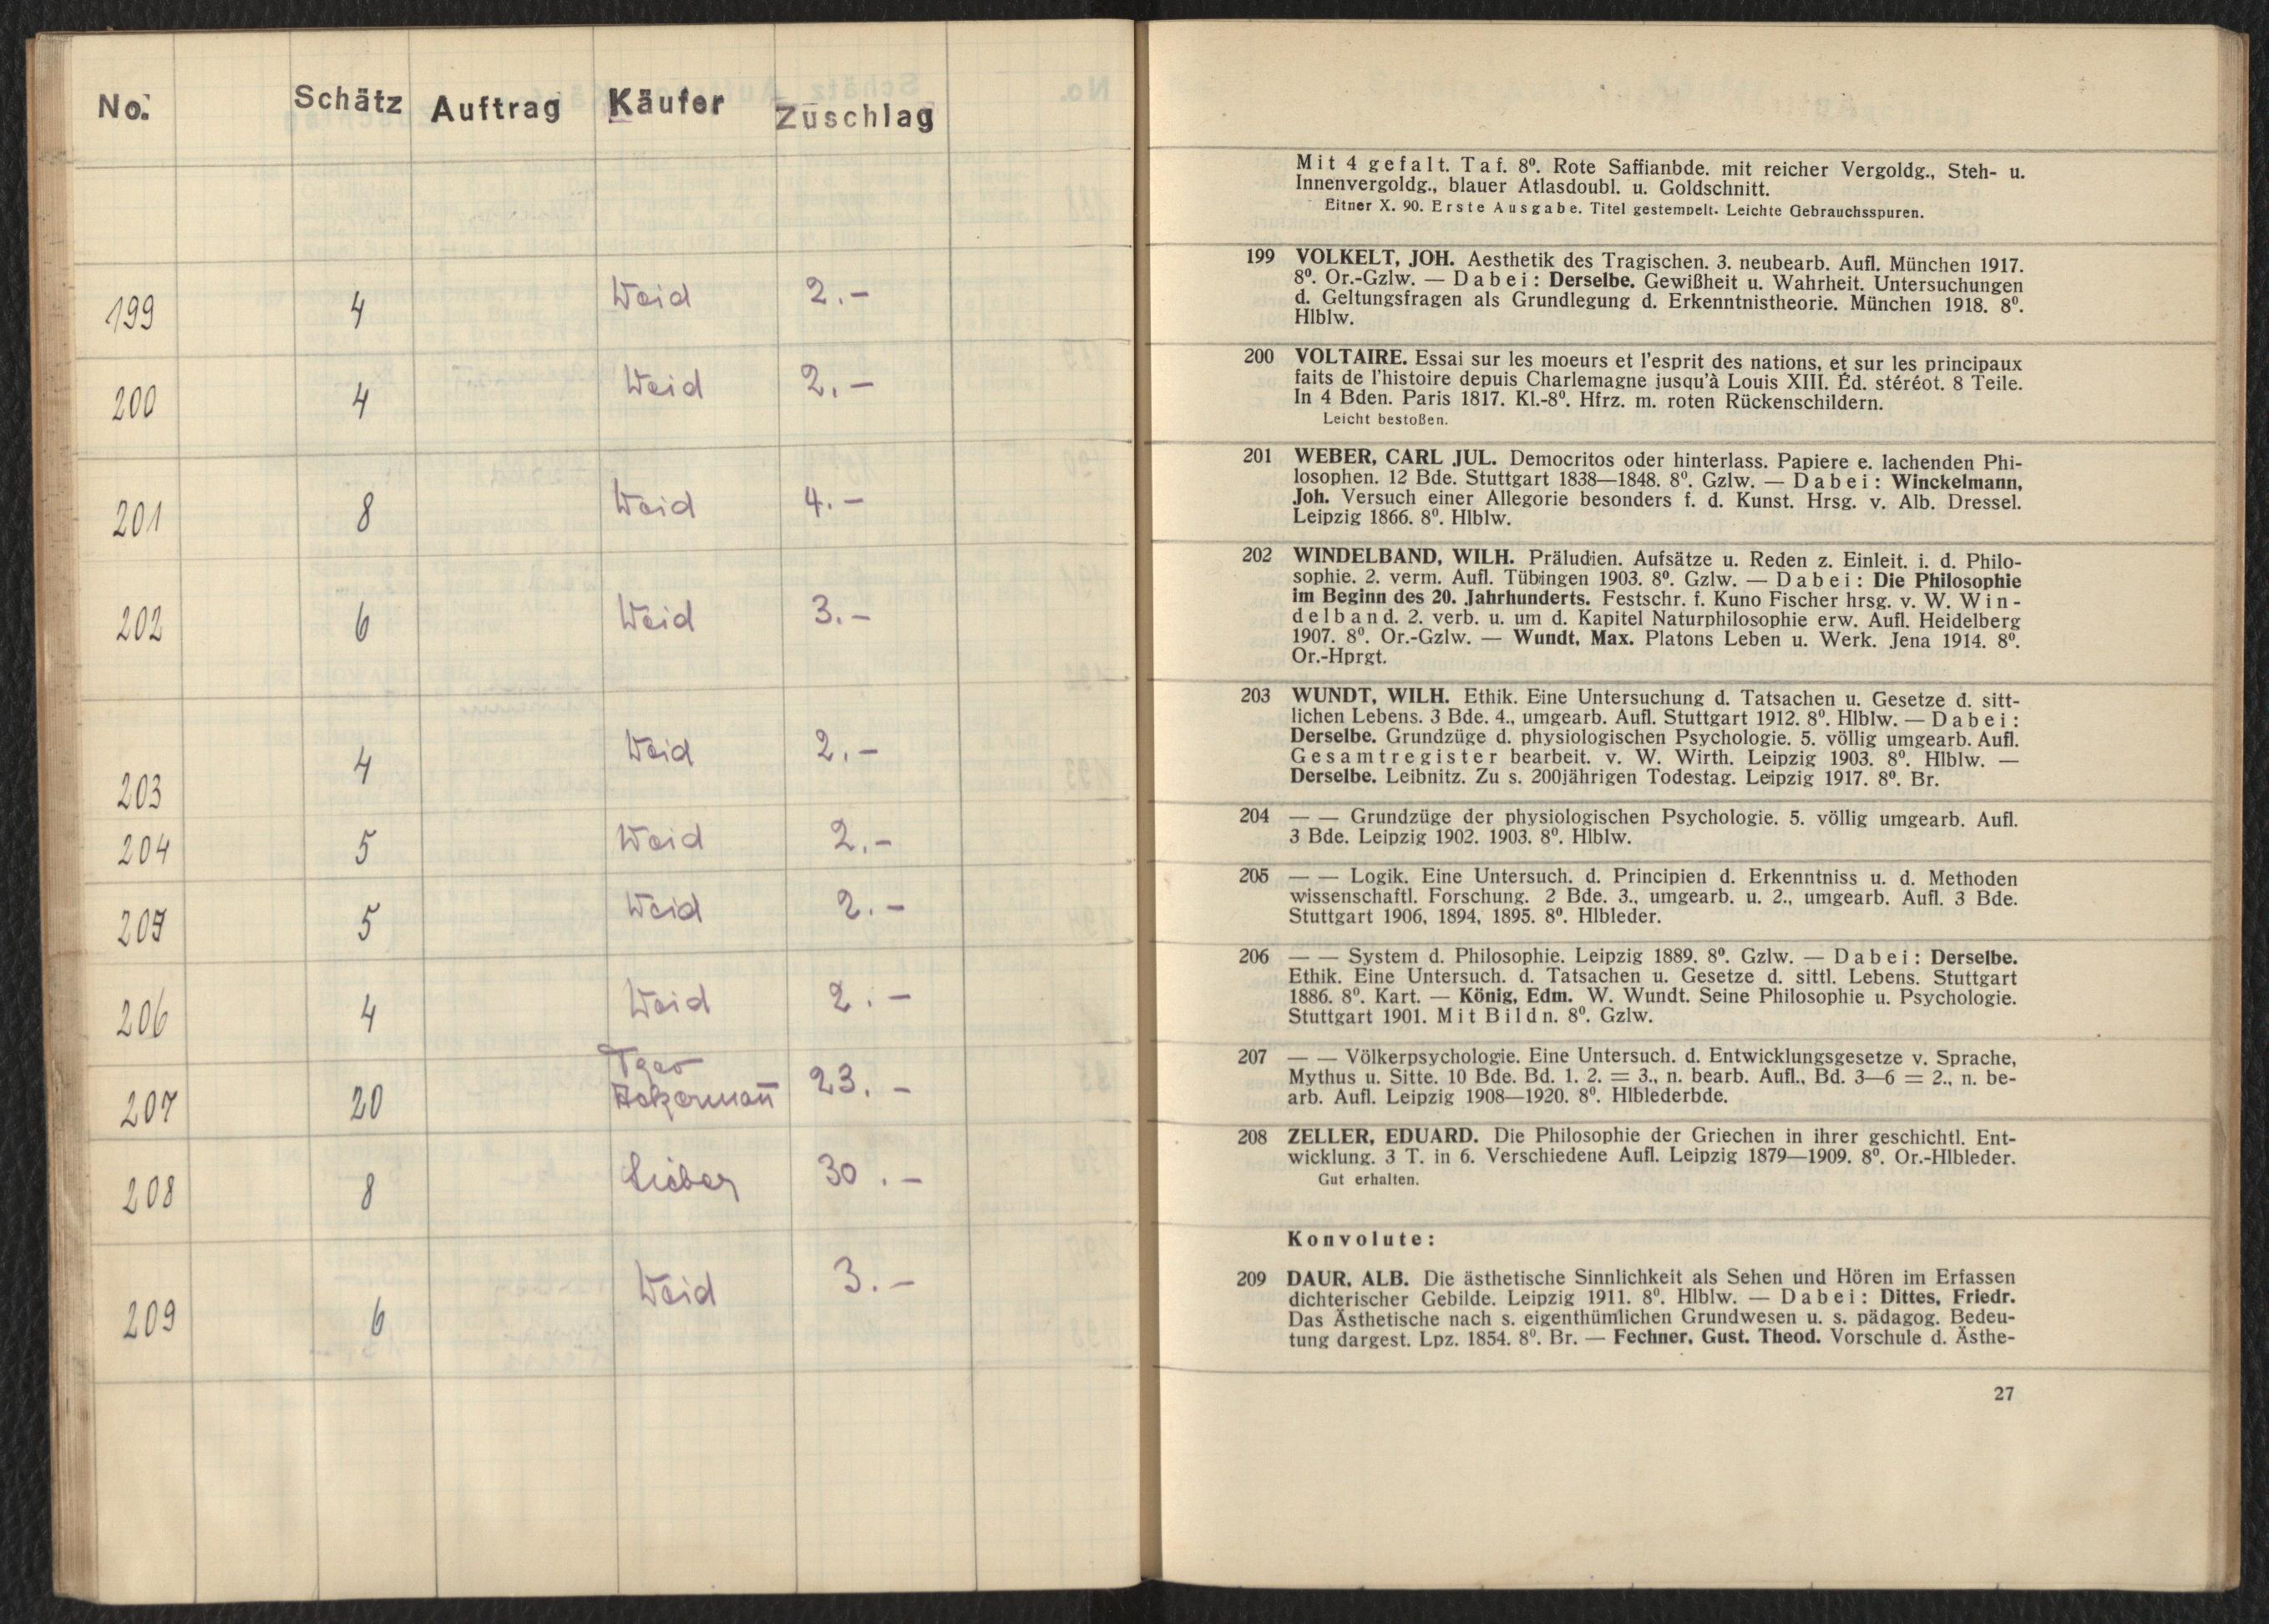 No. Schätz Auftrag Käufer Zuschlag
199 4 Weid 2.–
200 4 Weid 2.–
201 8 Weid 4.–
202 6 Weid 3.–
203 4 Weid 2.–
204 5 Weid 2.–
205 5 Weid 2.–
206 4 Weid 2.–
207 20 Ackermann 23.–
208 8 Lieber 30.–
209 6 Weid 3.–
Mit 4 gefalt. Taf. 8⁰. Rote Saffianbde. mit reicher Vergoldg., Steh- u.
Innenvergoldg., blauer Atlasdoubl. u. Goldschnitt.
Eitner X. 90. Erste Ausgabe. Titel gestempelt. Leichte Gebrauchsspuren.
199 VOLKELT, JOH. Aesthetik des Tragischen. 3. neubearb. Aufl. München 1917.
8⁰. Or.-Gzlw. — Dabei: Derselbe. Gewißheit u. Wahrheit. Untersuchungen
d. Geltungsfragen als Grundlegung d. Erkenntnistheorie. München 1918. 8⁰.
Hlblw.
200 VOLTAIRE. Essai sur les moeurs et l'esprit des nations, et sur les principaux
faits de l'histoire depuis Charlemagne jusqu'à Louis XIII. Éd. stéréot. 8 Teile.
In 4 Bden. Paris 1817. Kl.-8⁰. Hfrz. m. roten Rückenschildern.
Leicht bestoßen.
201 WEBER, CARL JUL. Democritos oder hinterlass. Papiere e. lachenden Phi-
losophen. 12 Bde. Stuttgart 1838—1848. 8⁰. Gzlw. — Dabei: Winckelmann,
Joh. Versuch einer Allegorie besonders f. d. Kunst. Hrsg. v. Alb. Dressel.
Leipzig 1866. 8⁰. Hlblw.
202 WINDELBAND, WILH. Präludien. Aufsätze u. Reden z. Einleit. i. d. Philo-
sophie. 2. verm. Aufl. Tübingen 1903. 8⁰. Gzlw. — Dabei: Die Philosophie
im Beginn des 20. Jahrhunderts. Festschr. f. Kuno Fischer hrsg. v. W. Win-
delband. 2. verb. u. um d. Kapitel Naturphilosophie erw. Aufl. Heidelberg
1907. 8⁰. Or.-Gzlw. — Wundt, Max. Platons Leben u. Werk. Jena 1914. 8⁰.
Or.-Hprgt.
203 WUNDT, WILH. Ethik. Eine Untersuchung d. Tatsachen u. Gesetze d. sitt-
lichen Lebens. 3 Bde. 4., umgearb. Aufl. Stuttgart 1912. 8⁰. Hlblw. — Dabei:
Derselbe. Grundzüge d. physiologischen Psychologie. 5. völlig umgearb. Aufl.
Gesamtregister bearbeit. v. W. Wirth. Leipzig 1903. 8⁰. Hlblw. —
Derselbe. Leibnitz. Zu s. 200jährigen Todestag. Leipzig 1917. 8⁰. Br.
204 — — Grundzüge der physiologischen Psychologie. 5. völlig umgearb. Aufl.
3 Bde. Leipzig 1902. 1903. 8⁰. Hlblw.
205 — — Logik. Eine Untersuch. d. Principien d. Erkenntniss u. d. Methoden
wissenschaftl. Forschung. 2 Bde. 3., umgearb. u. 2., umgearb. Aufl. 3 Bde.
Stuttgart 1906, 1894, 1895. 8⁰. Hlbleder.
206 — — System d. Philosophie. Leipzig 1889. 8⁰. Gzlw. — Dabei: Derselbe.
Ethik. Eine Untersuch. d. Tatsachen u. Gesetze d. sittl. Lebens. Stuttgart
1886. 8⁰. Kart. — König, Edm. W. Wundt. Seine Philosophie u. Psychologie.
Stuttgart 1901. Mit Bildn. 8⁰. Gzlw.
207 — — Völkerpsychologie. Eine Untersuch. d. Entwicklungsgesetze v. Sprache,
Mythus u. Sitte. 10 Bde. Bd. 1. 2. = 3., n. bearb. Aufl., Bd. 3—6 = 2., n. be-
arb. Aufl. Leipzig 1908—1920. 8⁰. Hlblederbde.
208 ZELLER, EDUARD. Die Philosophie der Griechen in ihrer geschichtl. Ent-
wicklung. 3 T. in 6. Verschiedene Aufl. Leipzig 1879—1909. 8⁰. Or.-Hlbleder.
Gut erhalten.
Konvolute:
209 DAUR, ALB. Die ästhetische Sinnlichkeit als Sehen und Hören im Erfassen
dichterischer Gebilde. Leipzig 1911. 8⁰. Hlblw. — Dabei: Dittes, Friedr.
Das Ästhetische nach s. eigenthümlichen Grundwesen u. s. pädagog. Bedeu-
tung dargest. Lpz. 1854. 8⁰. Br. — Fechner, Gust. Theod. Vorschule d. Ästhe-
27